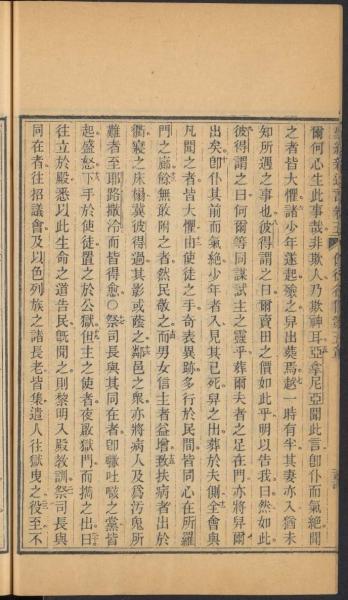 爾何心生此事哉非欺人乃欺神耳亞拿尼亞聞此言卽仆而氣絕聞
之者皆大懼諸少年遂起殮之舁出葬焉越一時有半其妻亦入猶未
知所遇之事也彼得謂之曰爾賣田之價如此乎明以告我曰然如此
彼得謂之曰何爾等同謀試主之靈乎葬爾夫者之足在門亦將舁爾
出矣卽仆其前而氣絕少年者入見其已死舁之出葬於夫側全會與
凡聞之者皆大懼由使徒之手奇表異跡多行於民間皆同心在所羅
門之廊餘無敢附之者然民敬之而男女信主者益增致扶病者出於
衢寢之床榻冀彼得過其影或蔭之鄰邑之衆亦將病人及爲污鬼所
難者至耶路撒冷而皆得愈〇祭司長與其同在者卽𠵽吐㗭之黨皆
起盛怒下手於使徒置之於公獄但主之使者夜啟獄門而攜之出曰
往立於殿悉以此生命之道告民旣聞之則黎明入殿教訓祭司長與
同在者往招議會及以色列族之諸長老皆集遣人往獄曳之役至不